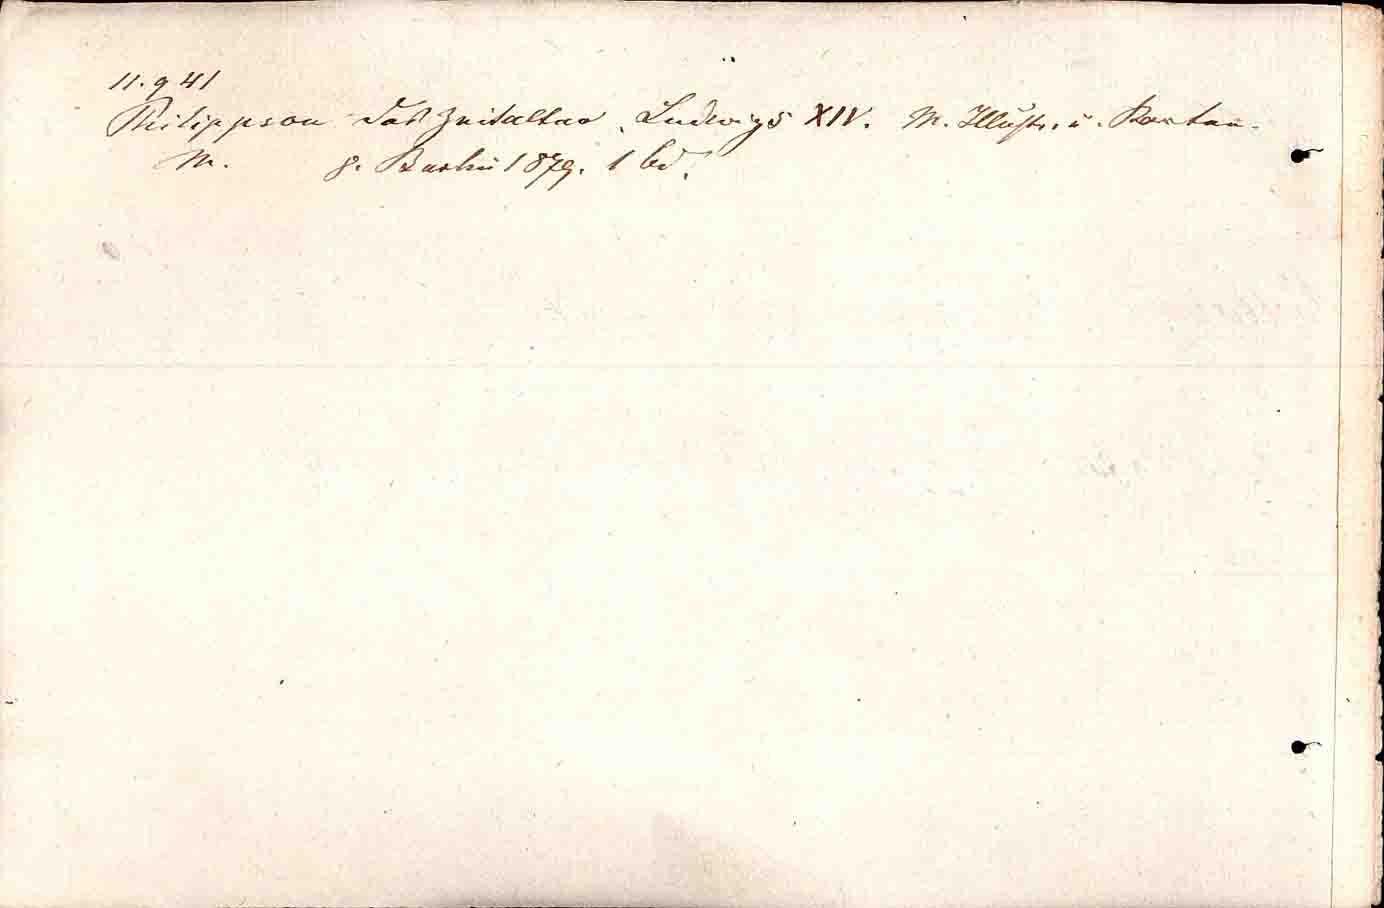 11. g 41
Philippson Das Zeitalter Ludwigs XIV. M. Illustr. u. Karten.
M. 8. Berlin 1879. 1 bd.